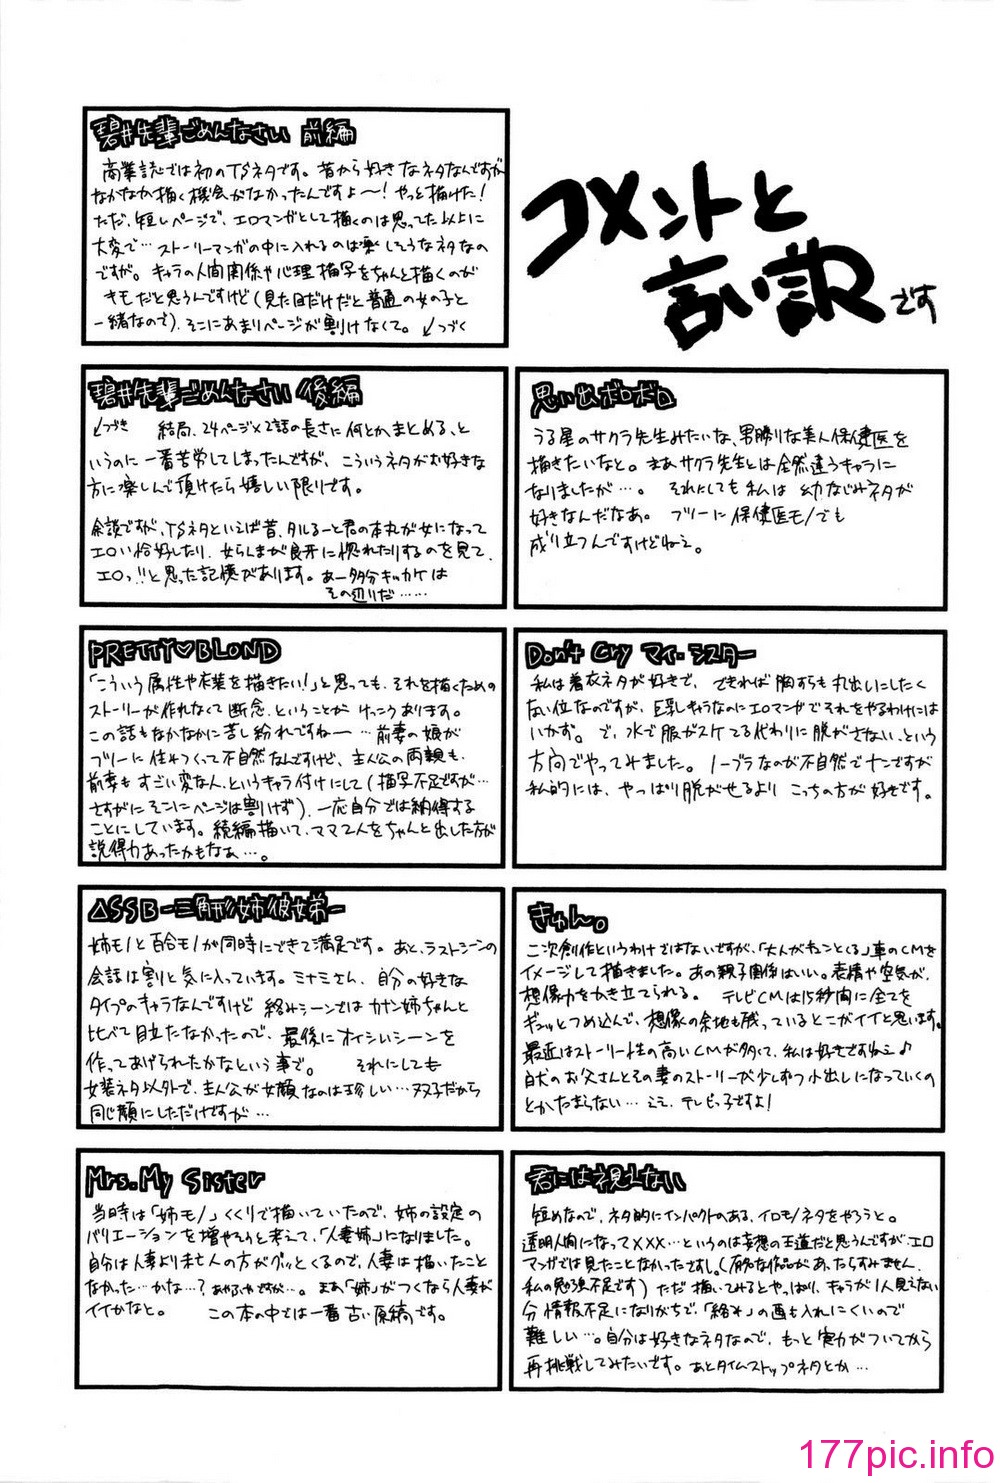 コメントと
言い訳です
碧井先輩ごめんなさい 前編
商業誌では初のTSネタです。昔から好きなネタなんですが
なかなか描く機会がなかったんですよ〜!やっと描けた!
ただ、短いページで、エロマンガとして描くのは思ってた以上に
大変で…ストーリーマンガの中に入れるのは楽しそうなネタなの
ですが。キャラの人間関係や心理描写をちゃんと描くのが
キモだと思うんですけど(見た目だけだと普通の女の子と
一緒なので)、そこにあまりページが割けなくて。↙つづく
碧井先輩ごめんなさい 後編
↘つづき 結局、24ページ×2話の長さに何とかまとめる、と
いうのに一番苦労してしまったんですが、こういうネタがお好きな
方に楽しんで頂けたら嬉しい限りです。
余談ですが、TSネタといえば昔、タルるーと君の本丸が女になって
エロい恰好したり、女らんまが良牙に惚れたりするのを見て、
エロっ!!と思った記憶があります。あー多分キッカケは
その辺りだ……
思い出ボロボロ
うる星のサクラ先生みたいな、男勝りな美人保健医を
描きたいなと。まあサクラ先生とは全然違うキャラに
なりましたが…。それにしても私は幼なじみネタが
好きなんだなあ。フツーに保健医モノでも
成り立つんですけどねえ。
PRETTY♡BLOND
「こういう属性や衣装を描きたい!」と思っても、それを描くための
ストーリーが作れなくて断念、ということがけっこうあります。
この話もなかなかに苦し紛れですねー…前妻の娘が
フツーに住みつくって不自然なんですけど、主人公の両親も、
前妻もすごい変な人、というキャラ付けにして(描写不足ですが…
さすがにそこにページは割けず)、一応自分では納得する
ことにしています。続編描いて、ママ2人をちゃんと出した方が
説得力あったかもなあ…。
Don't Cry マイ・シスター
私は着衣ネタが好きで、できれば胸すらも丸出しにしたく
ない位なのですが、巨乳キャラなのにエロマンガでそれをやるわけには
いかず。で、水で服がスケてる代わりに脱がさない、という
方向でやってみました。ノーブラなのが不自然でナンですが
私的には、やっぱり脱がせるよりこっちの方が好きです。
△SSB-三角形姉彼女弟-
姉モノと百合モノが同時にできて満足です。あと、ラストシーンの
会話は割と気に入っています。ミナミさん、自分の好きな
タイプのキャラなんですけど絡みシーンではカナン姉ちゃんと
比べて目立たなかったので、最後にオイシいシーンを
作ってあげられたかなという事で。それにしても
女装ネタ以外で、主人公が女顔なのは珍しい…双子だから
同じ顔にしただけですが…
きゅん。
二次創作というわけではないですが、「大人がキュンとくる」車のCMを
イメージして描きました。あの親子関係はいい。表情や空気が、
想像力をかき立てられる。テレビCMは15秒間に全てを
ギュッとつめ込んで、想像の余地も残っているとこがイイと思います。
最近はストーリー性の高いCMが多くて、私は好きですねえ♪
白犬のお父さんとその妻のストーリーが少しずつ小出しになっていくの
とかたまらない…ええ、テレビっ子ですよ!
Mrs.My Sister
当時は「姉モノ」くくりで描いていたので、姉の設定の
バリエーションを増やそうと考えて、「人妻姉」になりました。
自分は人妻より未亡人の方がグッとくるので、人妻は描いたこと
なかった…かな…?あやふやですが…。まあ「姉」がつくなら人妻が
イイかなと。この本の中では一番古い原稿です。
君には視えない
短めなので、ネタ的にインパクトのある、イロモノネタをやろうと。
透明人間になって×××…というのは妄想の王道だと思うんですが、エロ
マンガでは見たことなかったですし。(有名な作品があったらすみません、
私の勉強不足です)ただ描いてみるとやっぱり、キャラが1人見えない
分情報不足になりがちで、「絡み」の画も入れにくいので
難しい…。自分は好きなネタなので、もっと実力がついてから
再挑戦してみたいです。あとタイムストップネタとか…
177pic.info